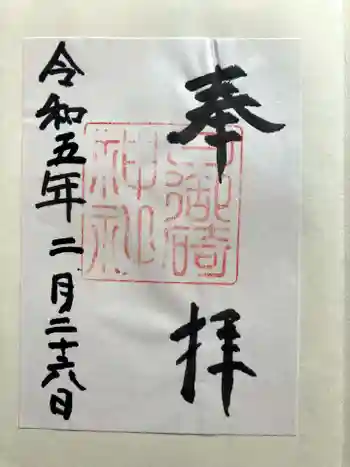 奉拝
御崎
神社
令和五年二月二十六日